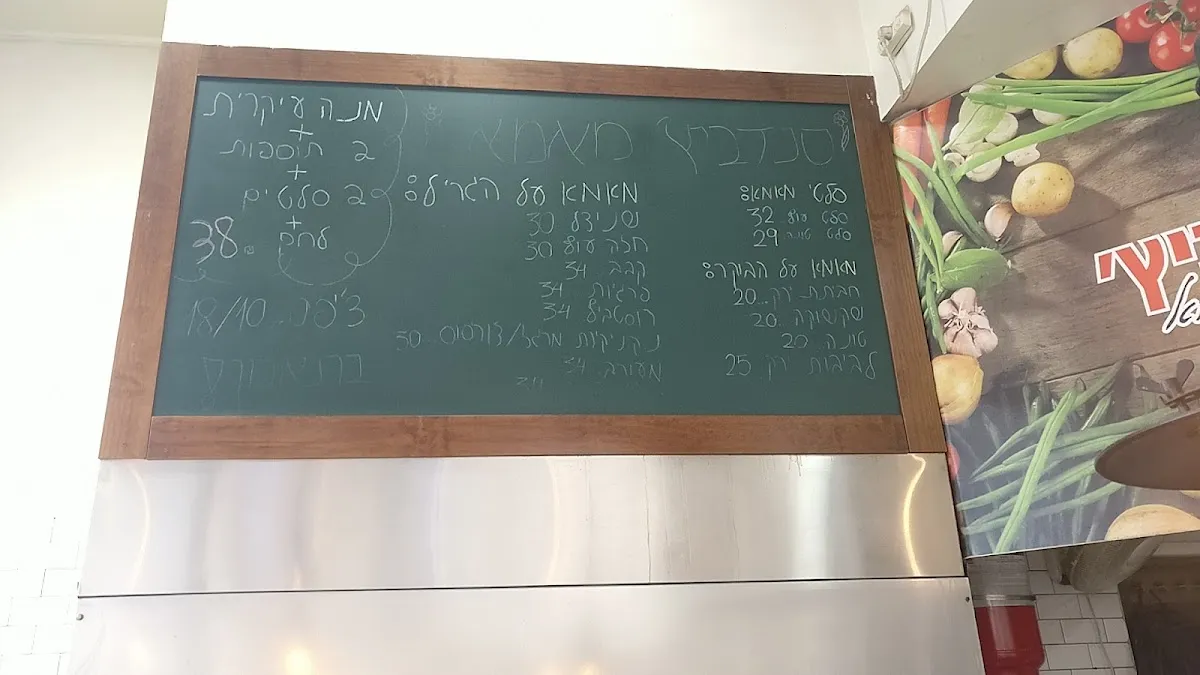 סנדביץ' מאמא
סלטי מאמא:
סלט עוף 32
סלט טונה 29
מאמא על הבוקר:
חביתת ירק...20
שקשוקה...20
טונה 20
לביבות ירק 25
מאמא על הגריל:
שניצל 30
חזה עוף 30
קבב. 34
פרגיות 34
רוסטביף 34
נקניקיות מרגז/צ'וריסוס...30
מעורב. 34
34
מנה עיקרית
+
2 תוספות
+
2 סלטים
+
לחם
38.
צ'יפס...18/10